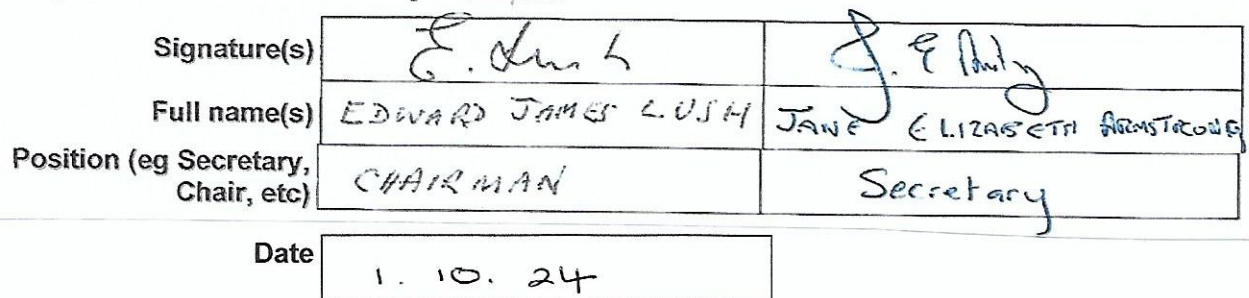 Signature(s) E. Lush J. E
Full name(s) EDWARD JAMES LUSH JANE ELIZABETH ARMSTRONG
Position (eg Secretary,
Chair, etc) CHAIRMAN Secretary
Date 1. 10. 24